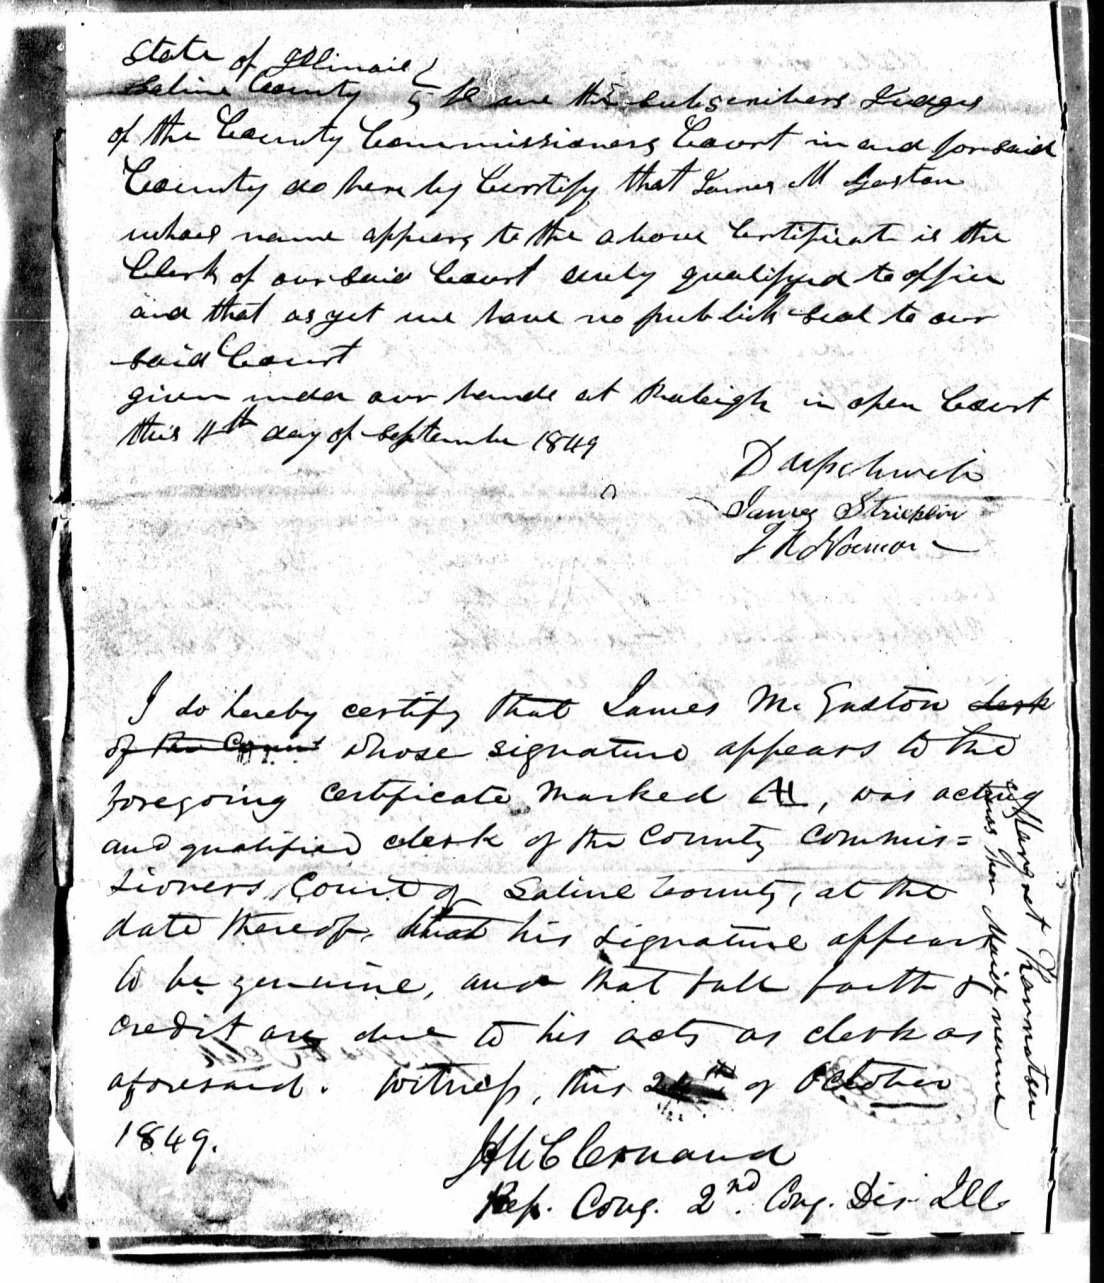 State of Illinois
Saline County we the subscribers Judges
of the County Commissioners Court in and for said
County do here by Certify that James M Gaston
whose name appears to the above Certificate is the
Clerk of our said Court duly qualifyed to office
and that as yet we have no publick seal to our
said Court
given under our hands at Raleigh in open Court
this 4th day of September 1849
James Stricklin
I do hereby certify that James M. Gaston clerk
of the Court whose signature appears to the
foregoing certificate marked A, was acting
and qualified clerk of the County Commis=
sioners Court of Saline County, at the
date thereof, that his signature appears
to be genuine, and that full faith &
credit are due to his acts as clerk as
aforesaid. Witness, this of October
1849.
J A McClernand
Rep. Cong. 2nd. Cong. Dis. Ill
of Margaret
was her Maiden name